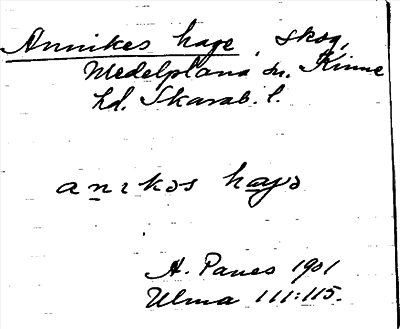 Annikes hage, skog,
Medelplana sn. Kinne
hd. Skarab. l.
anıkəs hagə
A. Panes 1901
Ulma 111:115.